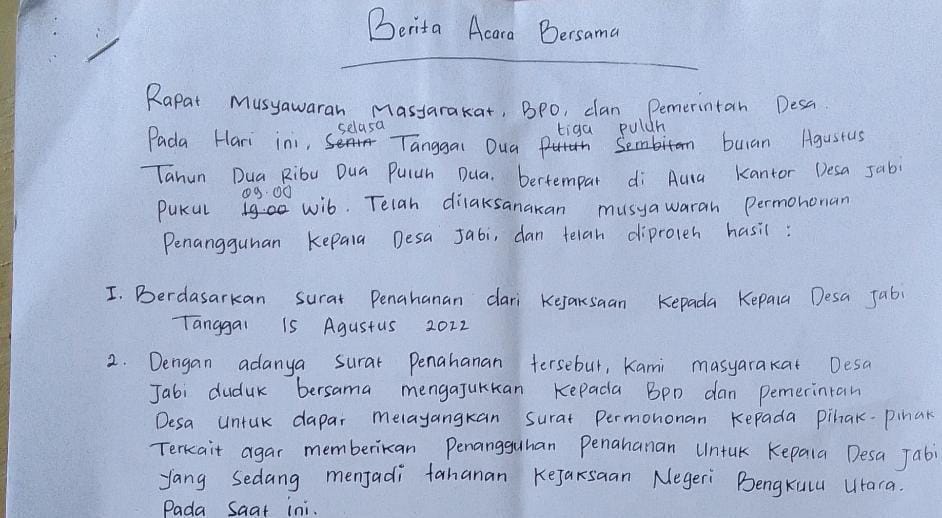 Berita Acara Bersama
Rapat Musyawarah Masyarakat, BPD, dan Pemerintah Desa.
selasa tiga puluh
Pada Hari ini, Senin Tanggal Dua Puluh Sembilan bulan Agustus
Tahun Dua Ribu Dua Puluh Dua. bertempat di Aula Kantor Desa Jabi
09.00
Pukul 19.00 wib. Telah dilaksanakan musyawarah Permohonan
Penangguhan Kepala Desa Jabi, dan telah diproleh hasil :
I. Berdasarkan surat Penahanan dari Kejaksaan Kepada Kepala Desa Jabi
Tanggal 15 Agustus 2022
2. Dengan adanya surat Penahanan tersebut, kami masyarakat Desa
Jabi duduk bersama mengajukkan Kepada BPD dan Pemerintah
Desa untuk dapat melayangkan Surat Permohonan Kepada pihak-pihak
Terkait agar memberikan Penangguhan Penahanan Untuk Kepala Desa Jabi
yang sedang menjadi tahanan Kejaksaan Negeri Bengkulu Utara.
Pada Saat ini.